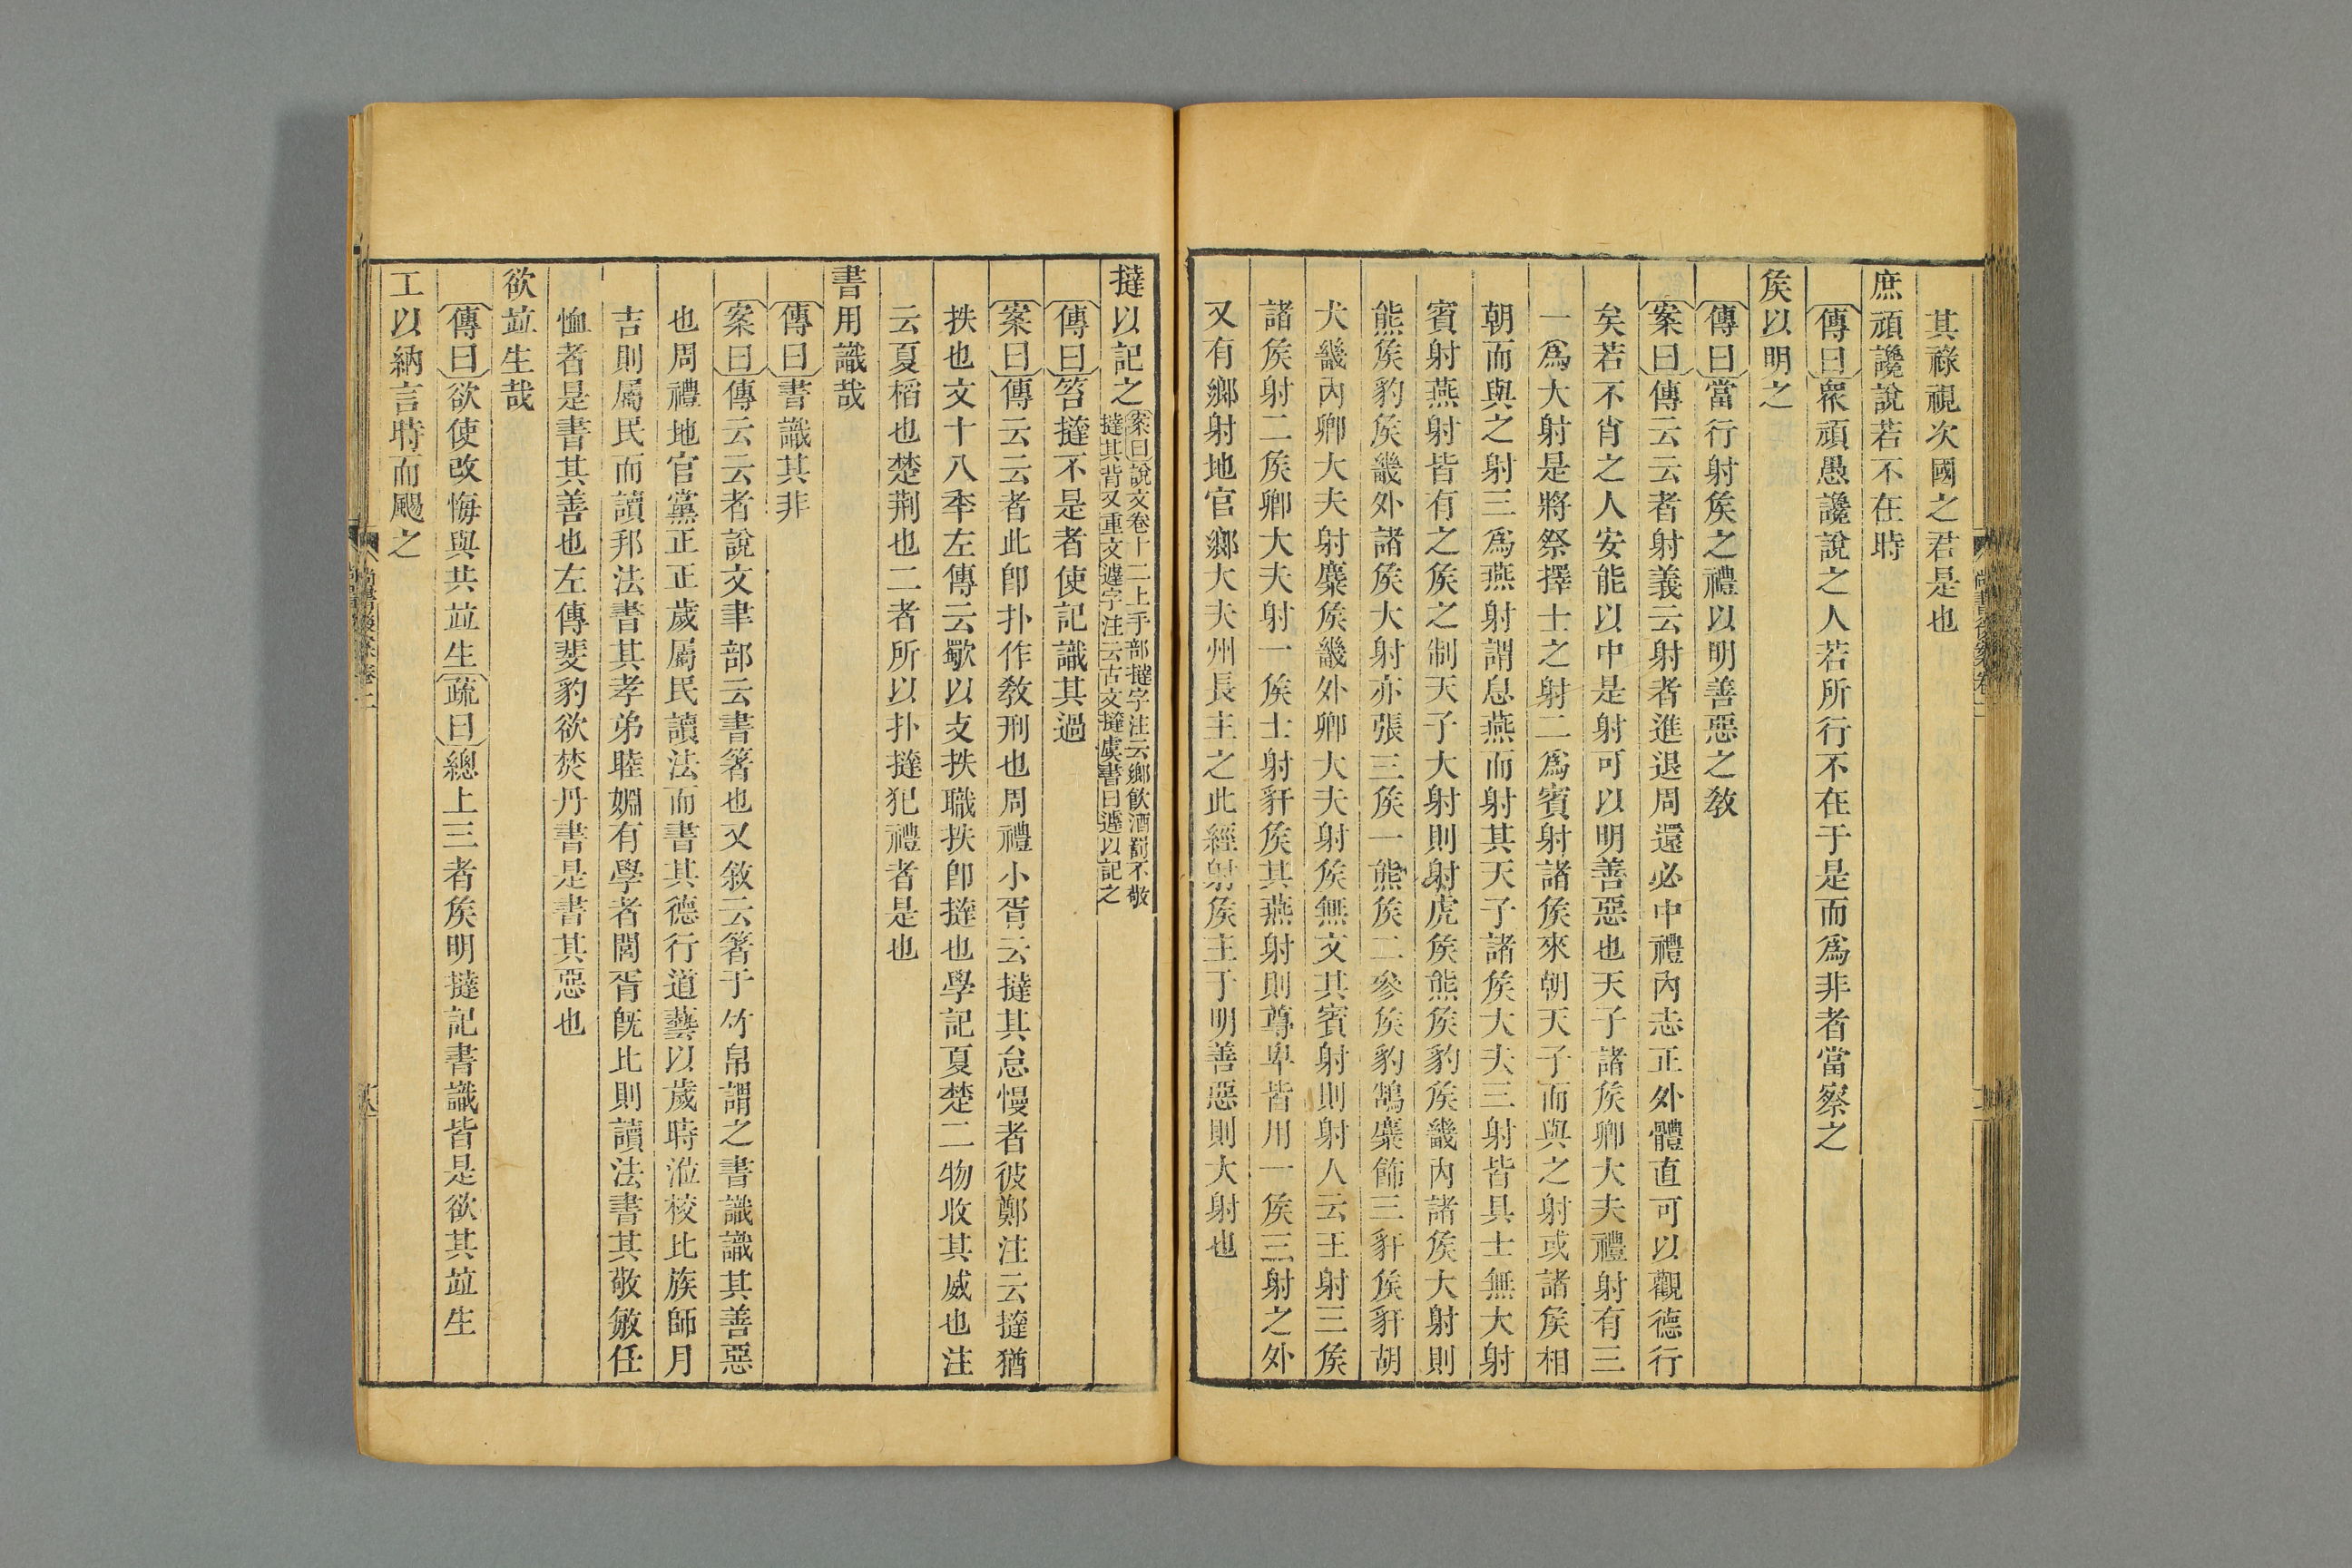 其祿視次國之君是也
庶頑讒說若不在時
傳曰衆頑愚讒說之人若所行不在于是而爲非者當察之
矦以明之
傳曰當行射矦之禮以明善惡之敎
案曰傳云云者射義云射者進退周還必中禮內志正外體直可以觀德行
矣若不肖之人安能以中是射可以明善惡也天子諸矦卿大夫禮射有三
一爲大射是將祭擇士之射二爲賓射諸矦來朝天子而與之射或諸矦相
朝而與之射三爲燕射謂息燕而射其天子諸矦大夫三射皆具士無大射
賓射燕射皆有之矦之制天子大射則射虎矦熊矦豹矦畿內諸矦大射則
熊矦豹矦畿外諸矦大射亦張三矦一熊矦二參矦豹鵠麋飾三豻矦豻胡
犬畿內卿大夫射麋矦畿外卿大夫射矦無文其賓射則射人云王射三矦
諸矦射二矦卿大夫射一矦士射豻矦其燕射則尊卑皆用一矦三射之外
又有鄉射地官鄉大夫州長主之此經射矦主于明善惡則大射也
撻以記之
案曰說文卷十二上手部撻字注云鄉飮酒罰不敬
撻其背又重文𨔶字注云古文撻虞書曰𨔶以記之
傳曰笞撻不是者使記識其過
案曰傳云云者此卽扑作敎刑也周禮小胥云撻其怠慢者彼鄭注云撻猶
抶也文十八秊左傳云歜以攴抶職抶卽撻也學記夏楚二物收其威也注
云夏榙也楚荆也二者所以扑撻犯禮者是也
書用識哉
傳曰書識其非
案曰傳云云者說文聿部云書箸也又敘云箸于竹帛謂之書識識其善惡
也周禮地官黨正正歲屬民讀法而書其德行道藝以歲時涖校比族師月
吉則屬民而讀邦法書其孝弟睦婣有學者閭胥旣比則讀法書其敬敏任
恤者是書其善也左傳斐豹欲焚丹書是書其惡也
欲竝生哉
傳曰欲使改悔與共竝生疏曰總上三者矦明撻記書識皆是欲其竝生
工以納言時而颺之